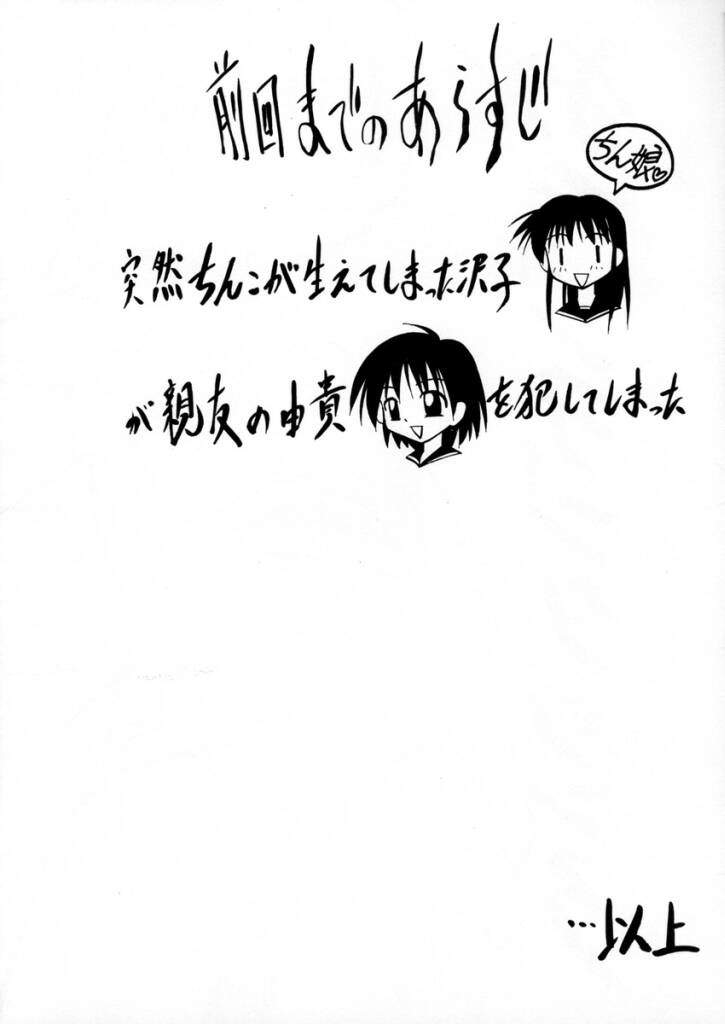 前回までのあらすじ
ちん娘♡
突然ちんこが生えてしまった沢子
が親友の由貴を犯してしまった
…以上